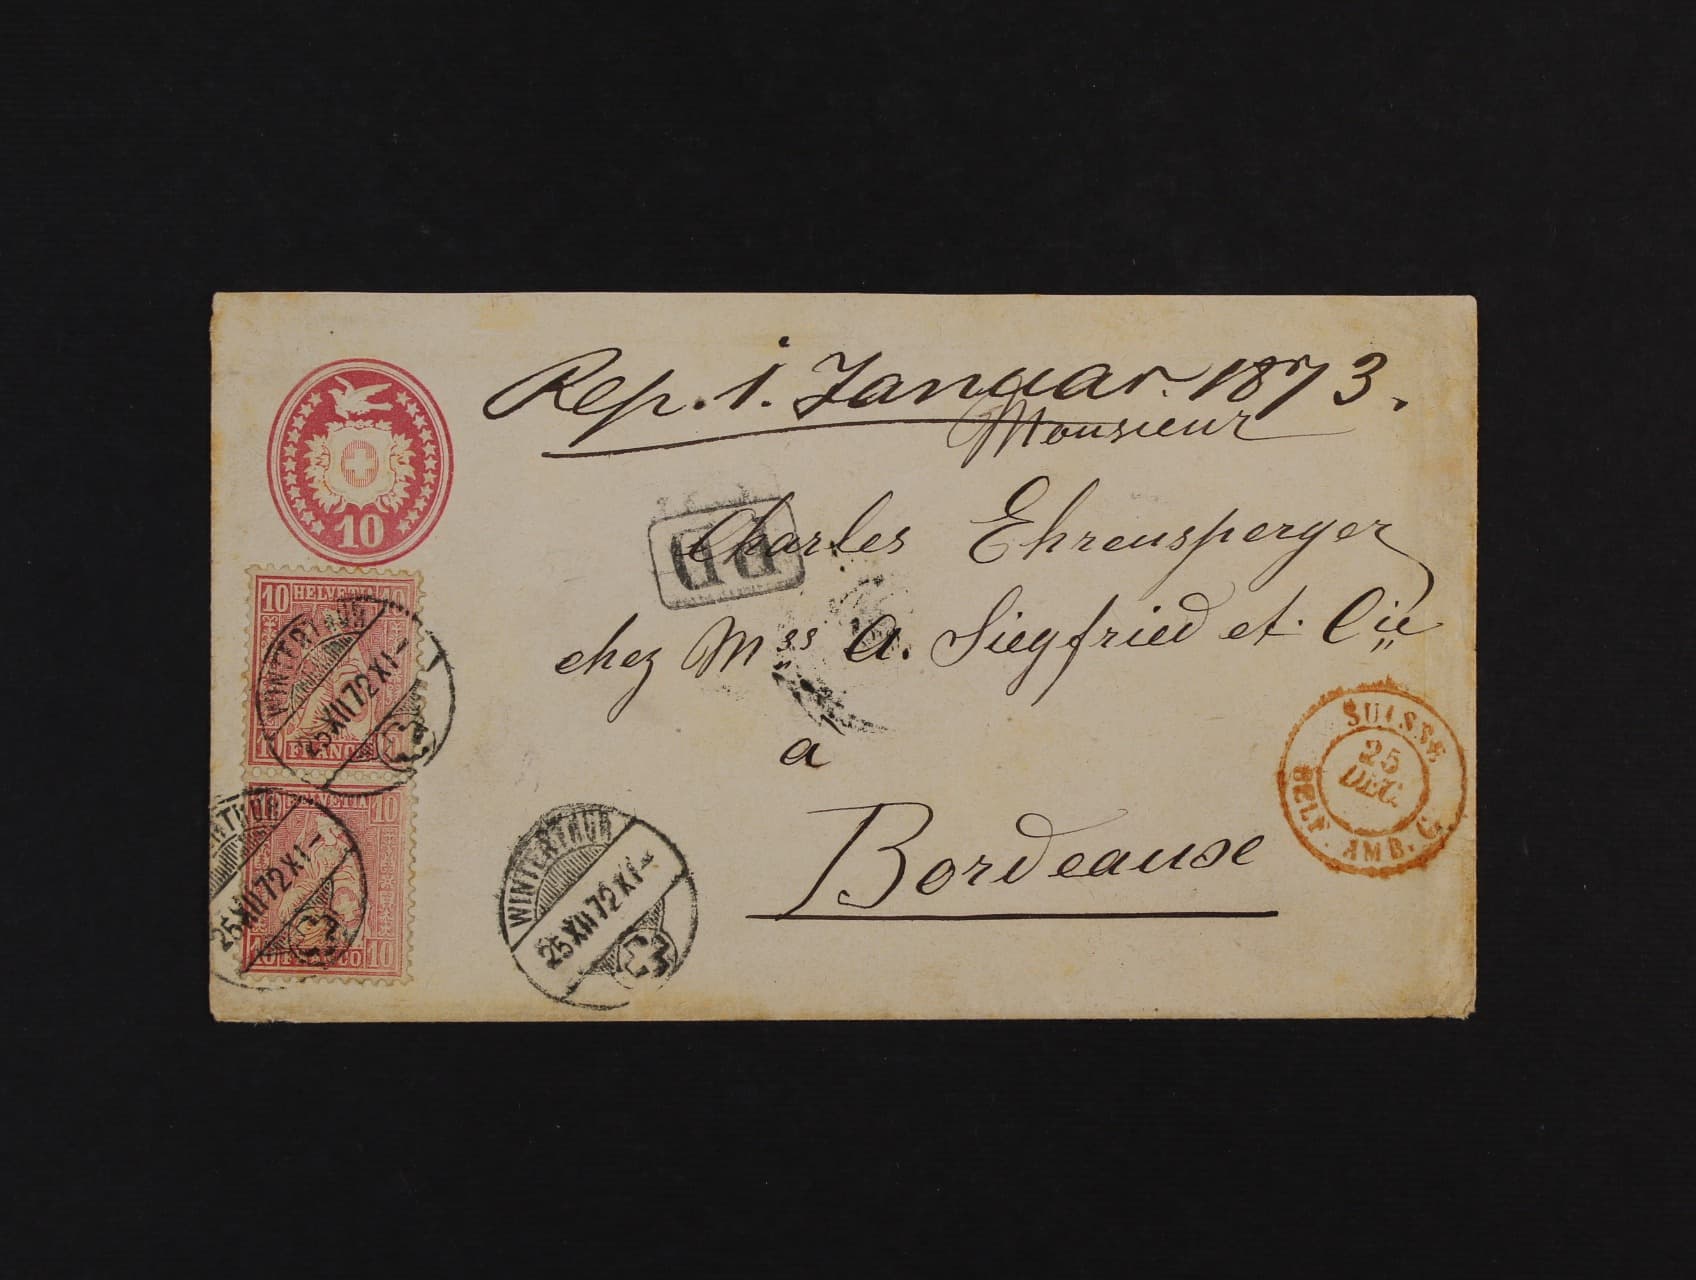 Rep. 1. Januar. 1873.
Monsieur
10
PD
Charles Ehrensperger
chez Mss A. Siegfried et. Cie
a
Bordeaux
10 HELVETIA 10
WINTERTHUR
25 XII 72 XI-
10 FRANCO
10 HELVETIA 10
WINTERTHUR
25 XII 72 XI-
10 FRANCO 10
WINTERTHUR
25 XII 72 XI-
SUISSE
25
DEC.
BELF. AMB. C